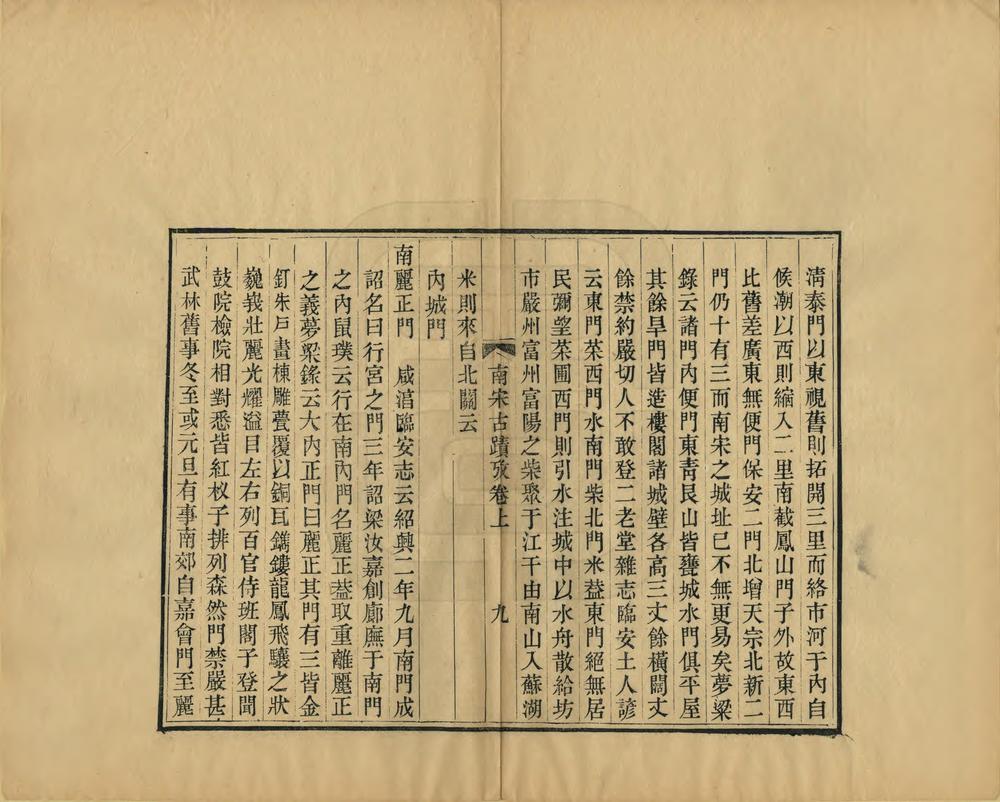 清泰門以東視舊則拓開三里而絡市河于內自
候潮以西則縮入二里南截鳳山門子外故東西
比舊差廣東無便門保安二門北增天宗北新二
門仍十有三而南宋之城址已不無更易矣夢粱
錄云諸門內便門東靑艮山皆甕城水門俱平屋
其餘旱門皆造樓閣諸城壁各高三丈餘橫闊丈
餘禁約嚴切人不敢登二老堂雜志臨安土人諺
云東門菜西門水南門柴北門米葢東門絕無居
民彌望菜圃西門則引水注城中以水舟散給坊
市嚴州富州富陽之柴聚于江干由南山入蘇湖
南宋古蹟攷卷上 九
米則來自北關云
內城門
南麗正門 咸淳臨安志云紹興二年九月南門成
詔名曰行宮之門三年詔梁汝嘉創廊廡于南門
之內鼠璞云行在南內門名麗正葢取重離麗正
之義夢粱錄云大內正門曰麗正其門有三皆金
釘朱戶畫棟雕甍覆以銅瓦鐫鏤龍鳳飛驤之狀
巍峩壯麗光耀溢目左右列百官侍班閣子登聞
鼓院檢院相對悉皆紅杈子排列森然門禁嚴甚
武林舊事冬至或元旦有事南郊自嘉會門至麗